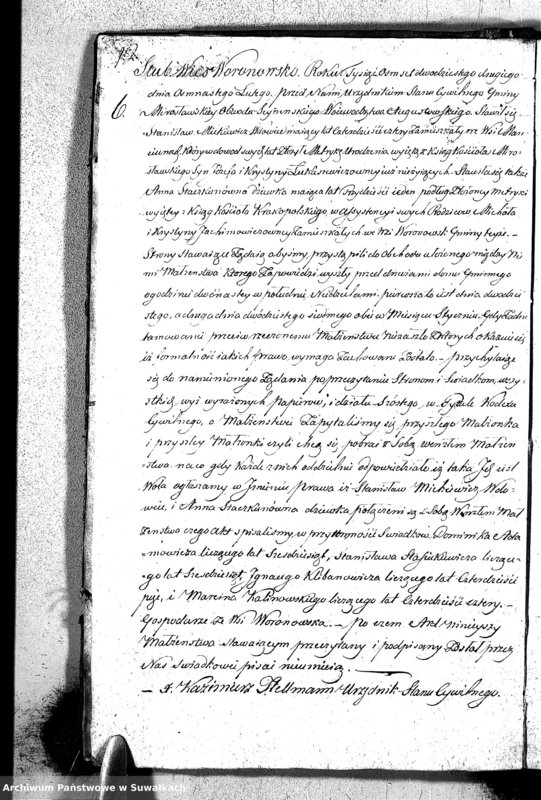 Ślub. Wieś Woronowsko. Roku Tysiąc Osmset dwódziestego drugiego
6.
dnia Osmnastego Lutego, przed Nami Urzędnikiem Stanu Cywilnego Gminy
Mirosławskiey Obwodu Seynenskiego Woiewodztwa Augustowskiego. Stawił się
Stanisław Mickiewicz Wdowiec maiący lat Czterdzieści cztery Zamieszkały we Wsi
Który dowod swych lat Złożył Metrykę Urodzenia wyiętą z Ksiąg Kościoła Miro-
sławskiego Syn Józefa i Krystyny Łukasiewiczowny iuż nieżyiących. Stawiła się także
Anna Staczkunówna dziewka maiąca lat Trzydzieści ieden podług Złożoney Metryki
wyiętey z Ksiąg Kościoła Krakopolskiego w assystencyi swych Rodziców Michała
i Krystyny Jachimowiczowney Zamieszkałych we Wsi Woronowsk Gminy teyże. –
Strony Stawaiące Żądaią abyśmy przystąpili do obchodu ułożonego między Ni
mi Małżeństwa Ktorego Zapowiedzi wyszły przed drzwiami domu Gminnego
o godzinie dwónastey w południe Niedzielami. pierwsza to iest dnia dwódzie
stego, a druga dnia dwódziestego siódmego oba w Miesiącu Styczniu. Gdy Żadne
tamowanie przeciw rzeczonemu Małżeństwu niezaszło Z Których okazuie się
iż formalność iakich prawo wymaga Zachowane Zostało. – przychylaiąc
się do namienionego Żądania po przeczytaniu Stronom i Swiadkom wszy
stkich wyż wyrażonych papierów, i działu Szóstego, w Tytule Kodexu
Cywilnego, o Małżeństwie Zapytaliśmy się przyszłego Małżonka
i przyszłey Małżonki czyli chcą się pobrać z Sobą wenzłem Małżeń
stwa na co gdy Każde z nich oddzielnie odpowiedziało iż taka Jest ich
Wola ogłaszamy w Jmieniu prawa iż Stanisław Mickiewicz Wdo-
wiec, i Anna Staczkunówna dziewka połączeni są z Sobą Wenzłem Mał
Żeństwa czego Akt spisaliśmy w przytomności Swiadków Dominika Ada
mowicza liczącego lat Szesdziesiąt, Stanisława Stasiukiewicza liczące-
go lat Szesdziesiąt, Jgnacego Klibanowicza liczącego lat Czterdzieści
pięć, i Marcina Kalinowskiego liczącego lat Czterdzieści cztery. –
Gospodarze ze Wsi Woronowska. – po czem Akt ninieyszy
Małżeństwa Stawaiącym przeczytany i podpisany Został przez
Nas Swiadkowie pisać nieumieią.
– X. Kazimierz Urzędnik Stanu Cywilnego.
Archiwum Państwowe w Suwałkach